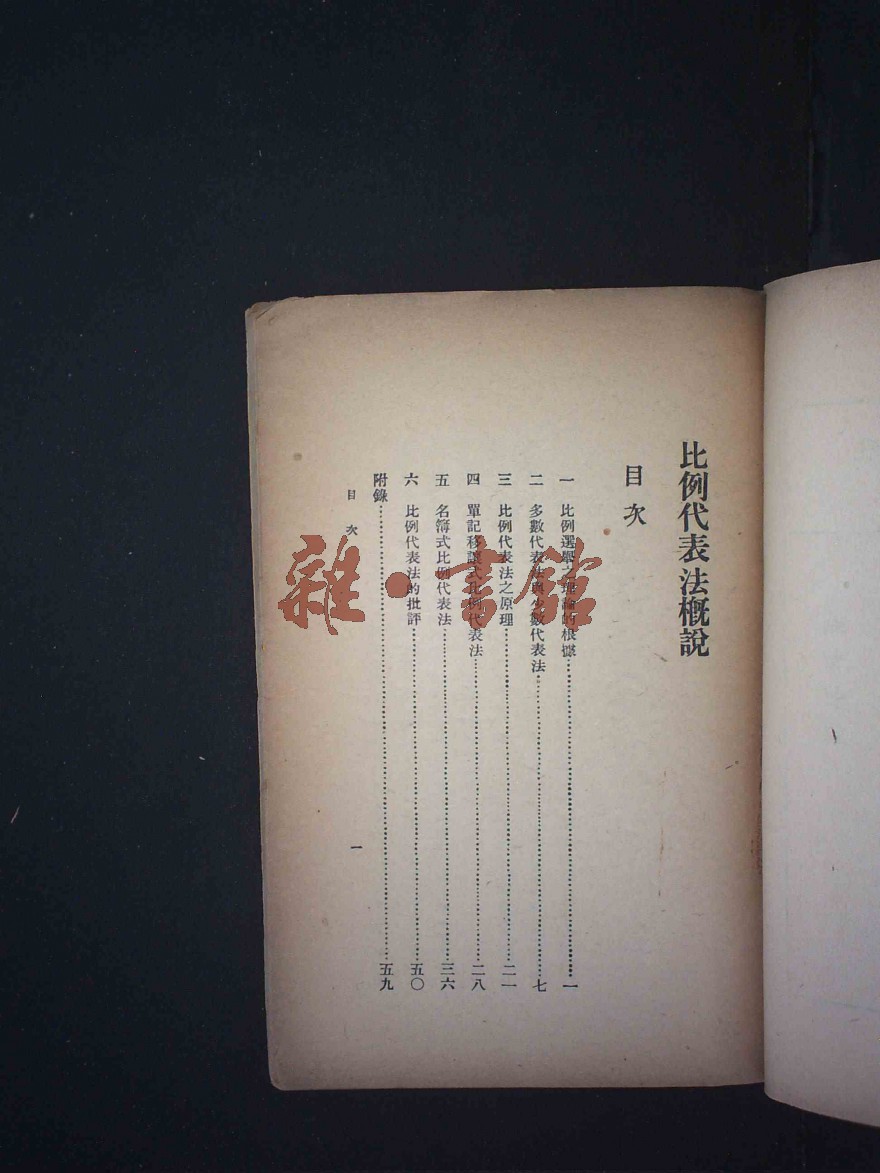 比例代表法概說
目次
一 比例選舉之理論的根據……一
二 多數代表法與少數代表法……七
三 比例代表法之原理……二一
四 單記移讓式比例代表法……二八
五 名簿式比例代表法……三六
六 比例代表法的批評……五〇
附錄……五九
目次 一
雜·书館